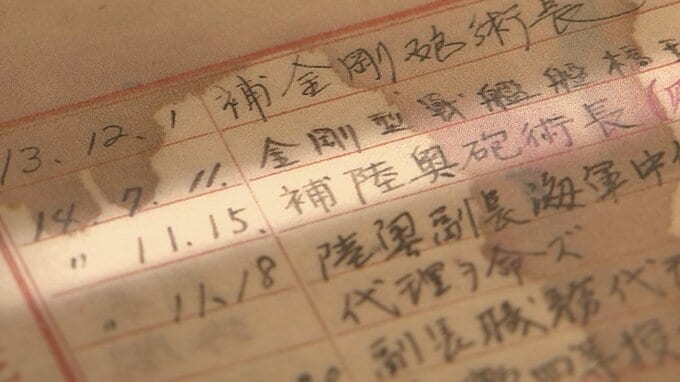 13.12.1 補金剛砲術長
14.7.11. 金剛型戰艦艦橋
〃 11.15. 補陸奥砲術長
〃 11.18 陸奥副長海軍中
代理ヲ命ズ
副長職務代